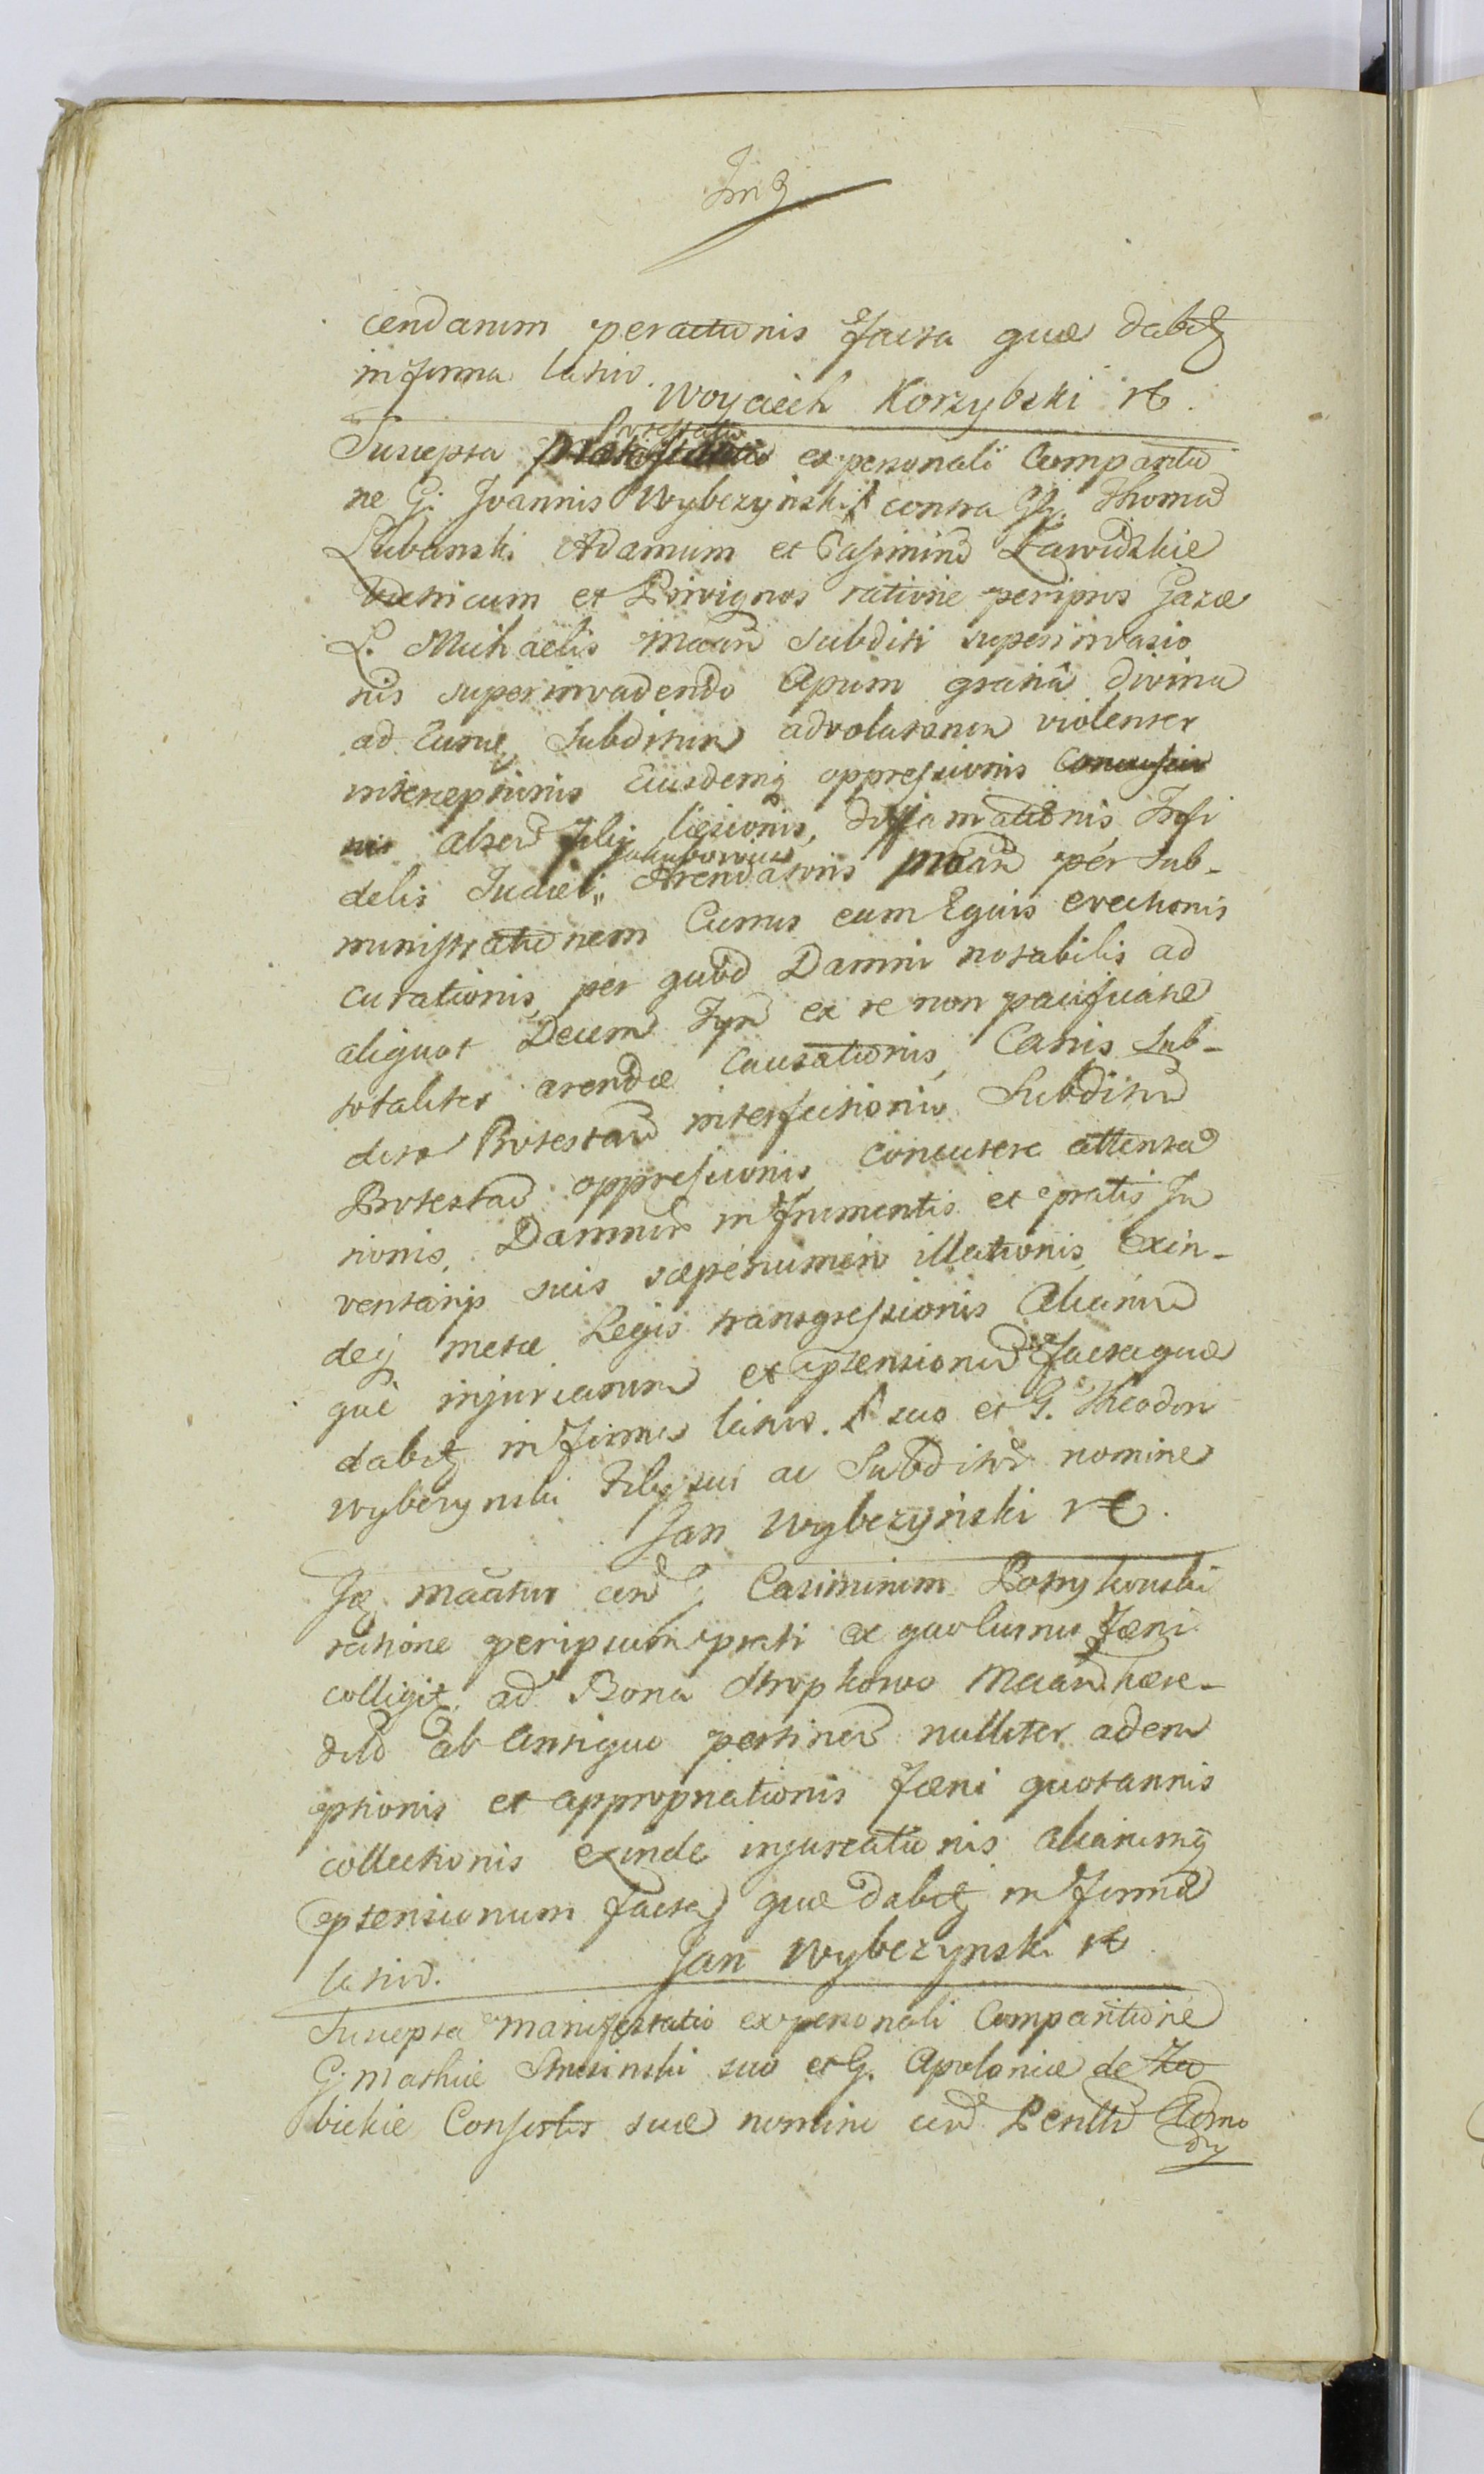 cendarum peractionis facta quæ dabitq
in forma latiori.
Woyciech Korzybski
Suscepta Protestatio ex personali Comparitio
ne G. Joannis Wybczynski contra GG. Thomã
Lubanski Adamum et Casimirũ Zawidzkie
Vitricum et Privignos ratione per ipsos Gazæ
L. Michaelis Maan Subditi superinvasio
nis superinvadendo Apum gratiâ divinâ
ad Eumq Subditum advolatarum violenter
interceptionis Eiusdemq oppressionis Concussio
nis alterõ filij læsionis, diffamationis Infi
delis Judæi Jakubowicz Arendatoris Maan per Sub-
ministrationem Currus cum Equis evectionis
curationis, per quod Damni notabilis ad
aliquot Decem Tym ex re non pacificatæ
totaliter arendæ Causationis, Canis Sub-
dito Protestan interfectionis Subditorũ
Protestan oppressionis, concutere attenta
tionis, Damnorũ in frumentis et pratis In
ventarijs suis sæpenumero illationis, Exin-
deq metæ Legis transgressionis Aliarum
que injuriarum et ptensionũ facta quæ
dabitq in forma latiori. suo et G. Theodori
Wybczynski Filij sui ac Subditorũ nomine
Jan Wybczyński
Iq maatur con G. Casimirum Potrykowski
ratione per ipsum prati ex quo currus fæni
colligitq ad Bona Stropkowo Maan hære-
ditõ ab antiquo pertinen nulliter adem
ptionis et appropriationis fæni quotannis
collectionis exinde injuriationis aliarumq
ptensionum facta quæ dabitq in forma
latiori. Jan Wybczynski
Suscepta manifestatio ex personali Comparitione
G. Mathiæ Smusinski suo et G. Apoloniæ de Zu
bickie Consortis suæ nomine con Perillũ Admo